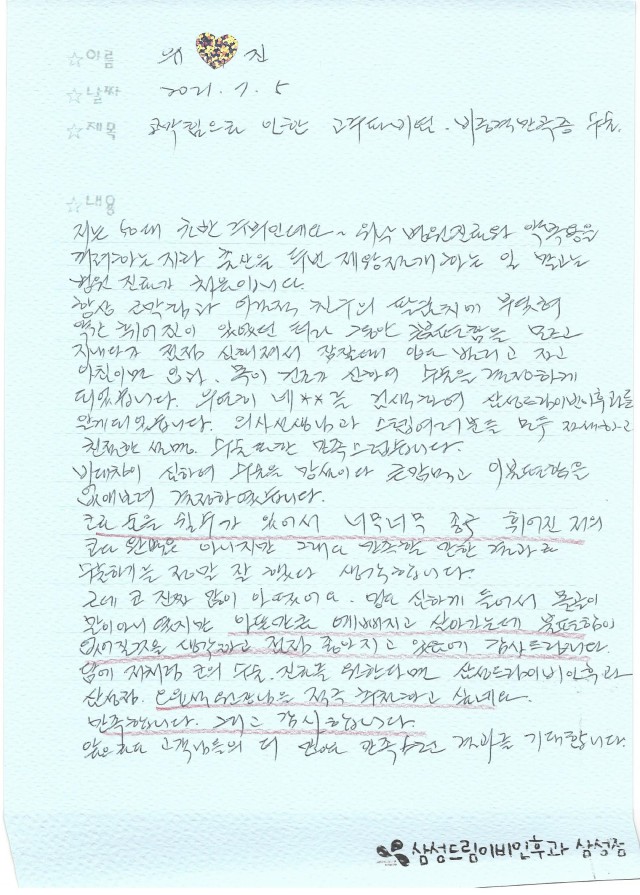 ☆이름 위 진
☆날짜 2021. 7. 5
☆제목 코막힘으로 인한 비중격만곡증 수술.
☆내용
저는 50대 초반 주부인데요~ 워낙 병원진료와 약복용을
꺼려하는지라 출산을 두번 제왕절개 하는 일 말고는
병원 진료가 처음입니다.
항상 코막힘과 어릴적 친구의 팔꿈치에 부딪혀
약간 휘어짐이 있었던 터라 그동안 불편함을 모르고
지내다가 점점 심해져서 잠잘때 입도 벌리고 자고
아침이면 입과, 목이 건조가 심하여 수술을 결정하게
되었습니다. 우연히 네**를 검색하여 삼성드림이비인후과를
알게되었습니다. 의사선생님과 스텝여러분들 모두 자세하고
친절한 설명. 수술 또한 만족스럽습니다.
심하여 수술을 망설이다 큰맘먹고 이 불편함을
없애보려 결정하였습니다.
코로 숨을 쉴수가 있어서 너무너무 좋구 휘어진 저의
코도 완벽은 아니지만 그래도 만족할 만한 결과로
수술하기를 정말 잘 했다 생각합니다.
근데 코 진짜 많이 아팠어요. 멍도 심하게 들어서 몰골이
말이 아니었지만 아픈만큼 예뻐지고 살아가는데 불편함이
없어진것을 생각하고 점점 좋아지고 있음에 감사드립니다.
저처럼 코의 수술, 진료를 원한다면 삼성드림이비인후과
삼성점. 원장님을 적극 추천하고 싶네요.
만족합니다. 그리고 감사합니다.
앞으로도 고객님들의 더 많은 만족감 결과를 기대합니다.
삼성드림이비인후과 삼성점